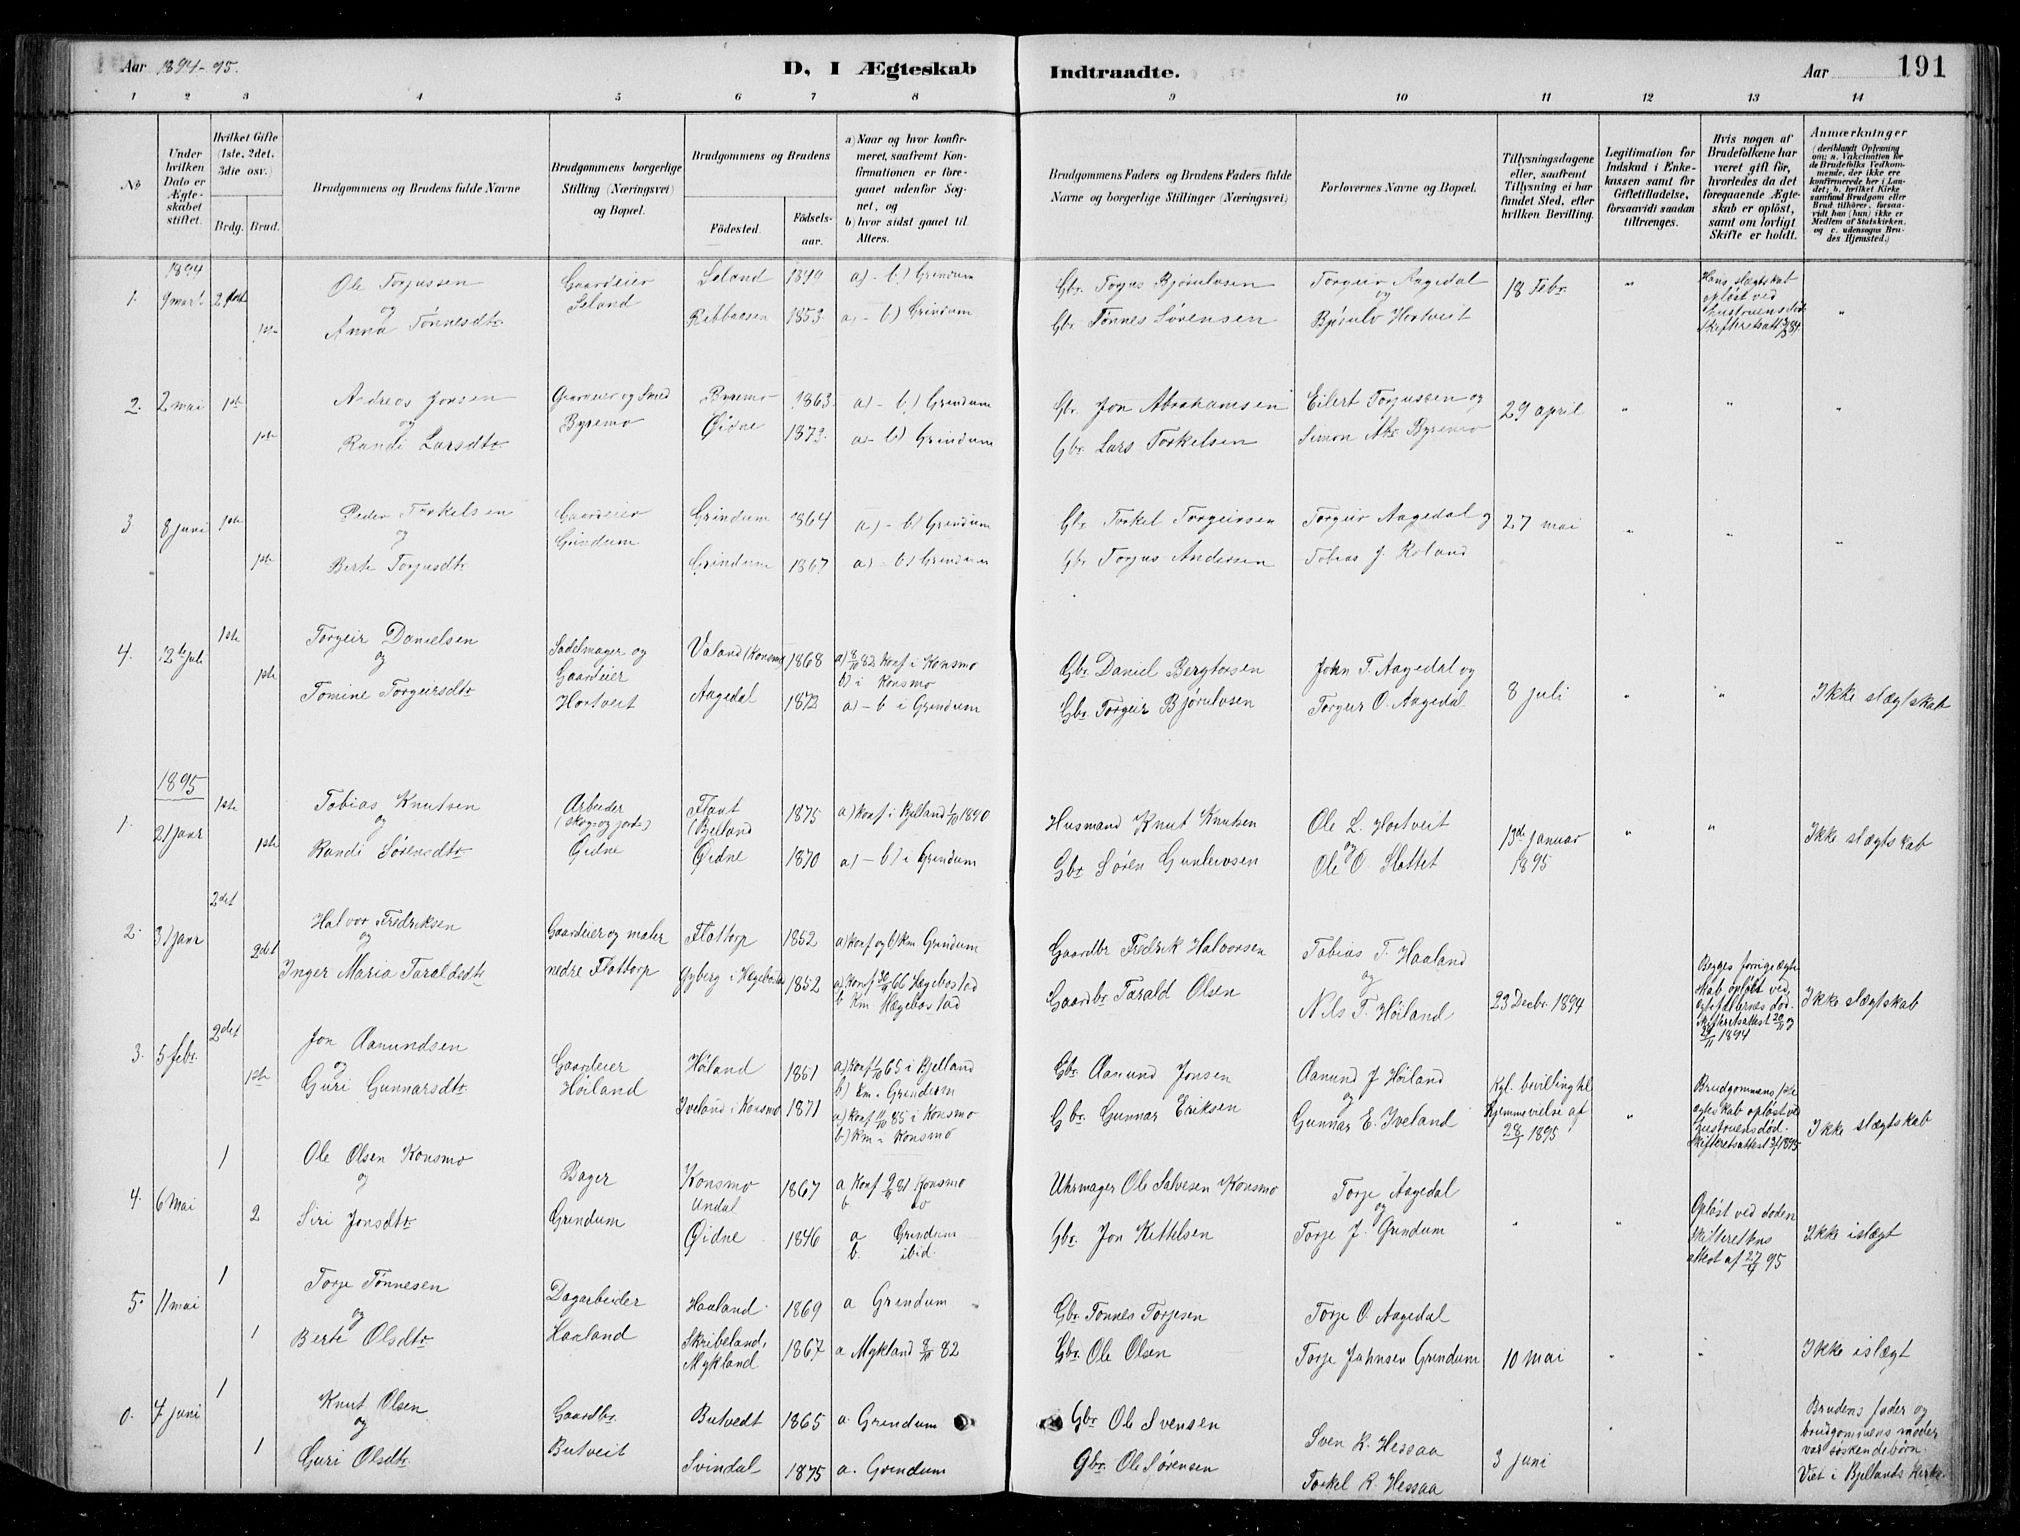 Aar 1894-95.
D, I Ægteskab
Indtraadte.
Aar
191
1 2 3 4 5 6 7 8 9 10 11 12 13 14
No
Under hvilken Dato er Ægteskabet stiftet.
Hvilket Gifte (1ste, 2det, 3die osv.)
Brdg. Brud.
Brudgommens og Brudens fulde Navne
Brudgommens borgerlige Stilling (Næringsvei) og Bopæl.
Brudgommens og Brudens
Födested. Födsels-aar.
a) Naar og hvor konfirmeret, saafremt Konfirmationen er foregaaet udenfor Sognet, og
b) hvor sidst gaaet til Alters.
Brudgommens Faders og Brudens Faders fulde Navne og borgerlige Stillinger (Næringsvei)
Forlovernes Navne og Bopæl.
Tillysningsdagene eller, saafremt Tillysning ei har fundet Sted, efter hvilken Bevilling.
Legitimation for Indskud i Enkekassen samt for Giftetilladelse, forsaavidt saadan tiltrænges.
Hvis nogen af Brudefolkene har været gift før, hvorledes da det foregaaende Ægteskab er oplöst, samt om lovligt Skifte er holdt.
Anmærkninger (deriblandt Oplysning om: a. Vakcination for de Brudefolks Vedkommende, der ikke ere konfirmerede her i Landet; b. hvilket Kirkesamfund Brudgom eller Brud tilhörer, forsaavidt han (hun) ikke er Medlem af Statskirken, og c. udensogns Brudes Hjemsted.)
1894
1. 9 marts 2det Ole Torjussen Gaardeier Seland 1849 a) - b) Grindum Gbr. Torjus Bjørulvsen Torgeir Aagedal 18 Febr " Hans ægteskab opløst ved hustruens død
og Seland og
1ste Anna Tønnesdtr Ribbaasen 1853 a) - b) Grindum Gbr Tønnes Sørensen Bjørulv Hortveit "
2. 2 mai 1ste Andreas Jonsen Gaardeier og Smed Byremo 1863 a) - b) Grendum Gbr Jon Abrahamsen Eilert Torjussen og 29 april " " "
og Byremo
1ste Randi Larsdtr Øidne 1873 a) - b) Grindum Gbr Lars Torkelsen Simon Abr Byremo
3 8 juni 1ste Peder Torkelsen Gaardeier Grindum 1864 a) - b) Grendum Gbr Torkel Torgeirssen Torgeir Aagedal og 27 mai " " "
og Grindum
1ste Berte Torjusdtr Grindum 1867 a) - b) Grendum Gbr Torjus Andersen Tobias J. Roland
4. 12te juli 1ste Torgeir Danielsen Sadelmager og Valand (Konsmo 1868 a) 8/10 82 Konf i Konsmo Gbr Daniel Bergtorsen John T. Aagedal og
og Gaardeier b) i Konsmo
1ste Tomine Torgeirsdtr Hortveit Aagedal 1872 a) - b i Grendum Gbr Torgeir Bjørulvsen Torgeir O. Aagedal 8 juli " " Ikke slægtskab
1895
1. 21 janr 1ste Tobias Knutsen Arbeider Flaat 1875 a) Konf i Bjelland 1890 Husmand Knut Knutsen Ole L. Hortveit 13de januar " " Ikke slægtskab
og (skog-og jord-) (Bjelland og 1895
1ste Randi Sørensdtr Øidne Øidne 1870 a) - b) i Grendum Gbr Søren Gunlevsen Ole O Slottet
2. 31 janr 2det Halvor Fredriksen Gaardeier og maler Flottorp 1852 a) Konf og b) Km Grendum Gaardbr Fredrik Halvorsen Tobias T. Haaland
og og
2det Inger Maria Taraldsdtr nedre Flottorp Gyberg i Hægebostad 1852 a) Konf 66 Hægebostad Gaardbr Tarald Olsen Nils T. Høiland 23 Decbr. 1894 Begges forrige ægteskab opløst ved ægtefællernes død. Skifteretsattest 20/11 og 24/11 1894 Ikke slægtskab
b Km Hægebostad
3. 5 febr. 2det Jon Aamundsen Gaardeier Høiland 1851 a) Konf 65 i Bjelland Gbr Aamund Jonsen Aanund J Høiland Kgl. bevilling til Brudgommens 1ste
og Høiland b) Km i Grendum og hjemmevielse af ægteskab opløst ved
1ste Guri Gunnarsdtr Iveland i Konsmo 1871 a) Konf 85 i Konsmo Gbr. Gunnar Eriksen Gunnar E. Iveland 28/1 1895 " hustruens død. Ikke slægtskab
b) Km i Konsmo
4. 6 Mai 1 Ole Olsen Konsmo Bager Konsmo 1867 a Konf 81 Konsmo Uhrmager Ole Salvesen Konsmo Torje Aagedal
og Undal b do og
2 Siri Jonsdtr Grendum Øidne 1846 a Grendum Gbr. Jon Kittelsen Torje J. Grendum " " Opløst ved døden Skifterettens attest af 27/4 95 Ikke i slægt
b. ibid.
5. 11 mai 1 Torje Tønnesen Dagarbeider Haaland 1869 a Grendum Gbr Tønnes Torjesen Torje O. Aagedal
og
1 Berte Olsdtr Haaland Skribeland, Mykland 1867 a Mykland 82 Gbr Ole Olsen Torje Jahnsen Grendum 10 mai " " Ikke i slægt
7 juni 1 Knut Olsen Gaardbr. Butvedt 1865 a. Grendum Gbr Ole Svensen Sven K. Hessaa Brudens fader og brudgommens moder
og Butveit 3 juni var søskendebørn.
1 Guri Olsdtr Svindal 1875 a. Grendum Gbr Ole Sørensen Torkel K. Hessaa Viet i Bjellands Kirke